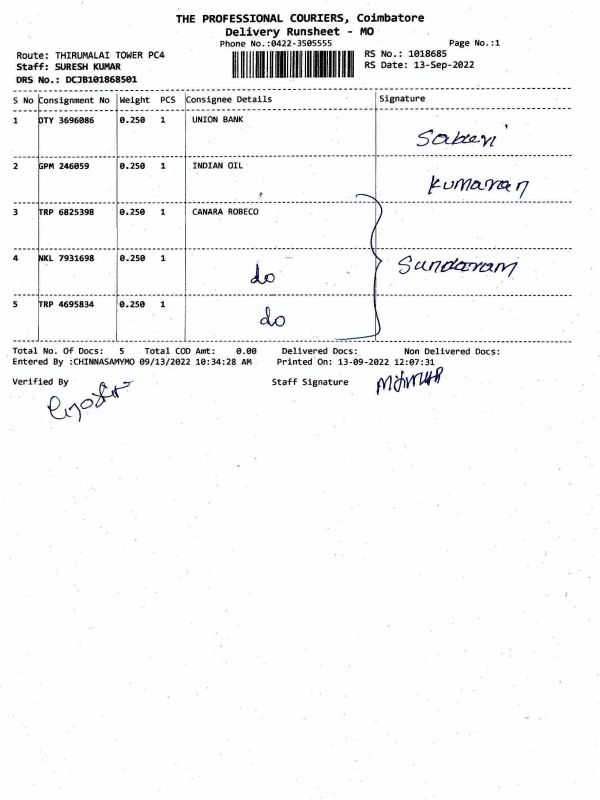 THE PROFESSIONAL COURIERS, Coimbatore
Delivery Runsheet - MO
Phone No.:0422-3505555 Page No.:1
Route: THIRUMALAI TOWER PC4 RS No.: 1018685
Staff: SURESH KUMAR RS Date: 13-Sep-2022
DRS No.: DCJB101868501
S No Consignment No Weight PCS Consignee Details Signature
1 DTY 3696086 0.250 1 UNION BANK
2 GPM 246059 0.250 1 INDIAN OIL Kumaran
3 TRP 6825398 0.250 1 CANARA ROBECO
4 NKL 7931698 0.250 1 do Sundaram
5 TRP 4695834 0.250 1 do
Total No. Of Docs: 5 Total COD Amt: 0.00 Delivered Docs: Non Delivered Docs:
Entered By :CHINNASAMYMO 09/13/2022 10:34:28 AM Printed On: 13-09-2022 12:07:31
Verified By Staff Signature